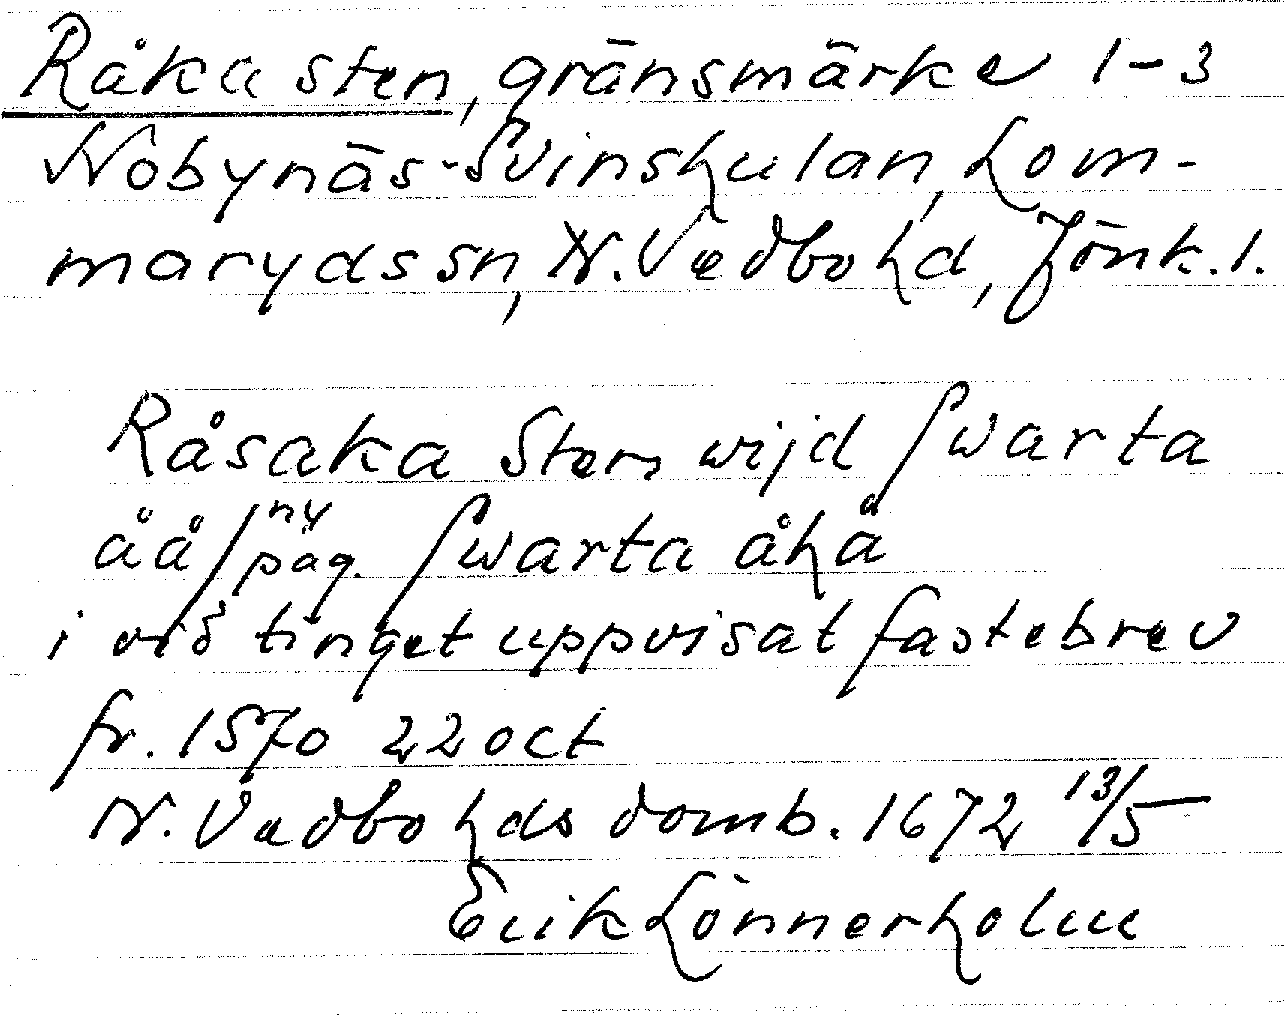 Råka sten, gränsmärke 1-3
Nobynäs-Svinshulan, Lom-
maryds sn, N. Vedbo hd, Jönk. l.
Råsaka Sten wijd Swarta
åå/ny pag. Swarta åhå
i vid tinget uppvisat fastebrev
fr. 1570 22 oct
N. Vedbo hds domb. 1672 13/5
Erik Lönnerholm